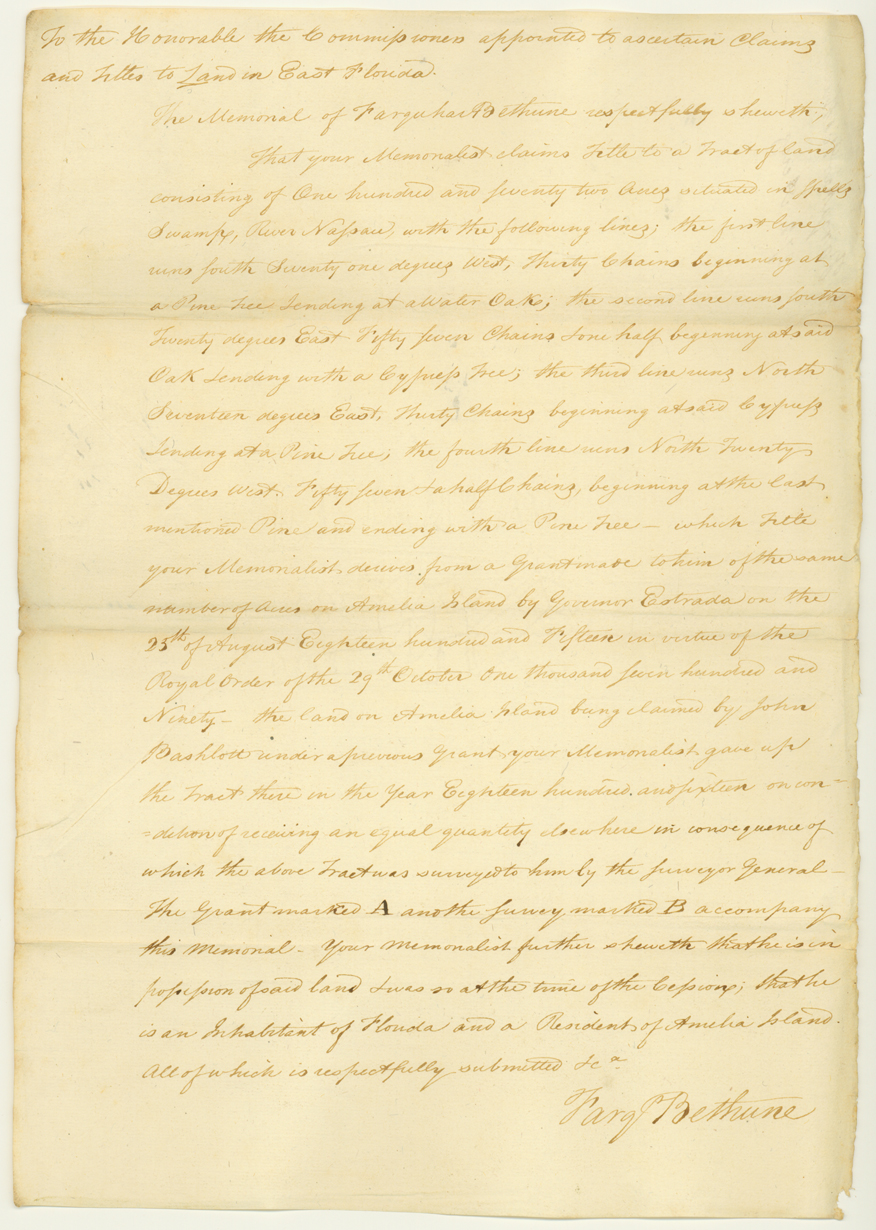 To the Honorable the Commissioners appointed to ascertain Claims
and Titles to Land in East Florida.
The Memorial of Farquhar Bethune respectfully sheweth,
That your Memorialist claims Title to a Tract of land
consisting of One hundred and seventy two Acres situated in Spells
Swamp, River Nassau, with the following lines; the first line
runs south Seventy one degrees West, Thirty Chains beginning at
a Pine Tree Tending at a Water Oak; the second line runs south
Twenty degrees East Fifty seven Chains & one half beginning at said
Oak & ending with a Cypress Tree; the third line runs North
Seventeen degrees East, Thirty Chains beginning at said Cypress
& ending at a Pine Tree; the fourth line runs North Twenty
Degrees West. Fifty seven & a half Chains, beginning at the last
mentioned Pine and ending with a Pine Tree – which Title
your Memorialist derives from a Grant made to him of the same
number of Acres on Amelia Island by Governor Estrada on the
25th of August Eighteen hundred and Fifteen in virtue of the
Royal Order of the 29th October One thousand seven hundred and
Ninety – the land on Amelia Island being claimed by John
Bashlott under a previous Grant your Memorialist gave up
the Tract there in the Year Eighteen hundred and sixteen on con=
=dition of receiving an equal quantity elsewhere in consequence of
which the above Tract was surveyed to him by the Surveyor General –
The Grant marked A and the Survey marked B accompany
this Memorial – Your Memorialist further sheweth that he is in
possession of said land & was so at the time of the Cession; that he
is an Inhabitant of Florida and a Resident of Amelia Island.
All of which is respectfully submitted &ca
Farqr Bethune